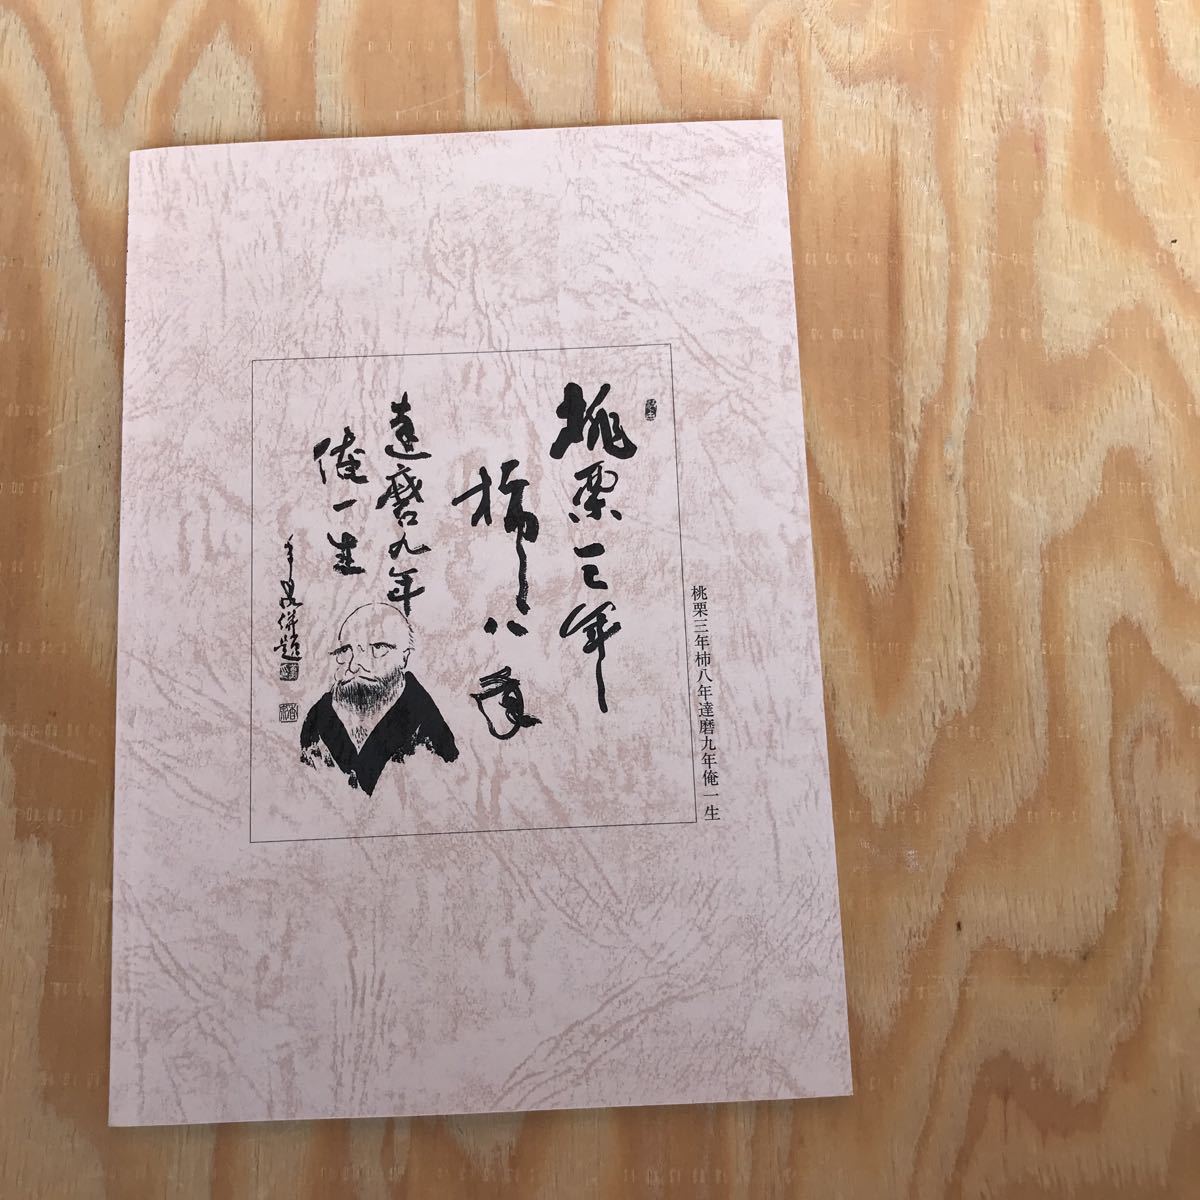 桃栗三年柿八年達磨九年俺一生
桃栗三年
柿八年
達磨九年
俺一生
併題